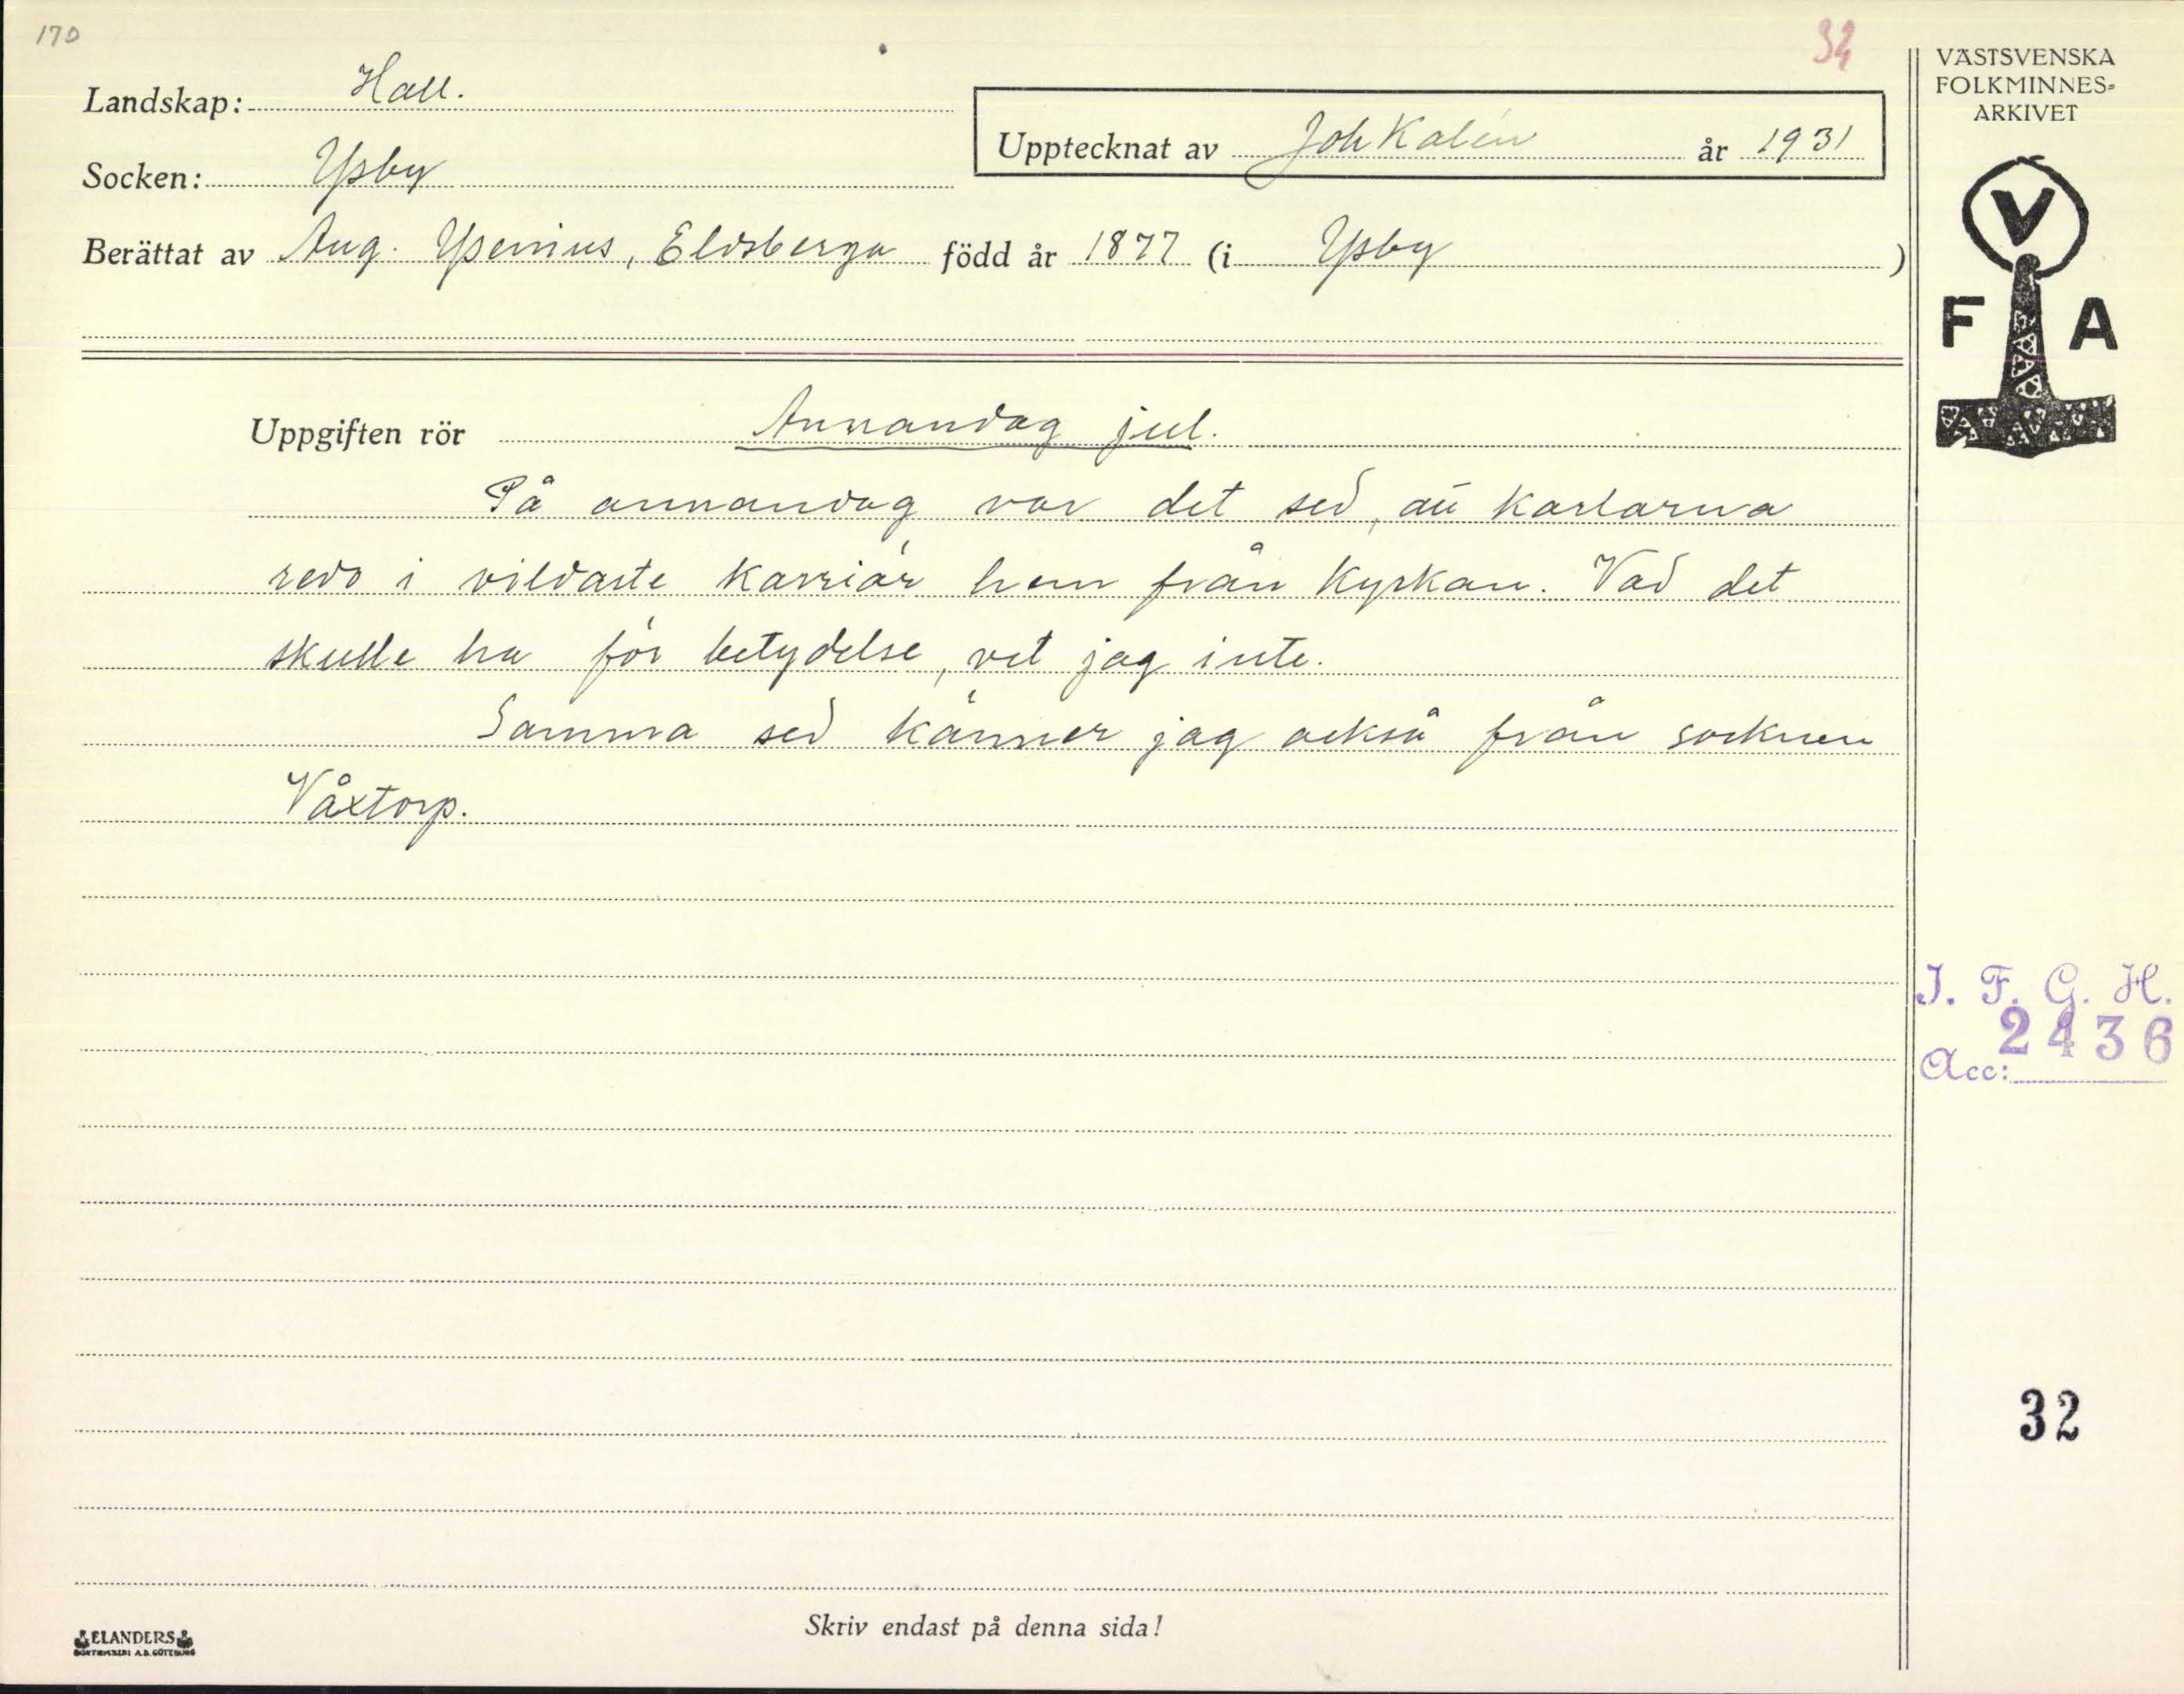 170
32
Landskap: Hall.
Upptecknat av Joh Kalén år 1931
Socken: Ysby
Berättat av Aug. Ysenius, Eldsberga född år 1877 (i Ysby)
VÄSTSVENSKA
FOLKMINNES-
ARKIVET
V
F A
Uppgiften rör Annandag jul.
På annandag var det sed, att karlarna
redo i vildaste karriär hem från kyrkan. Vad det
skulle ha för betydelse, vet jag inte.
Samma sed känner jag också från socknen
Våxtorp.
I. F. G. H.
2436
Acc:
32
Skriv endast på denna sida!
ELANDERS
BOKTRYCKERI A.B. GÖTEBORG